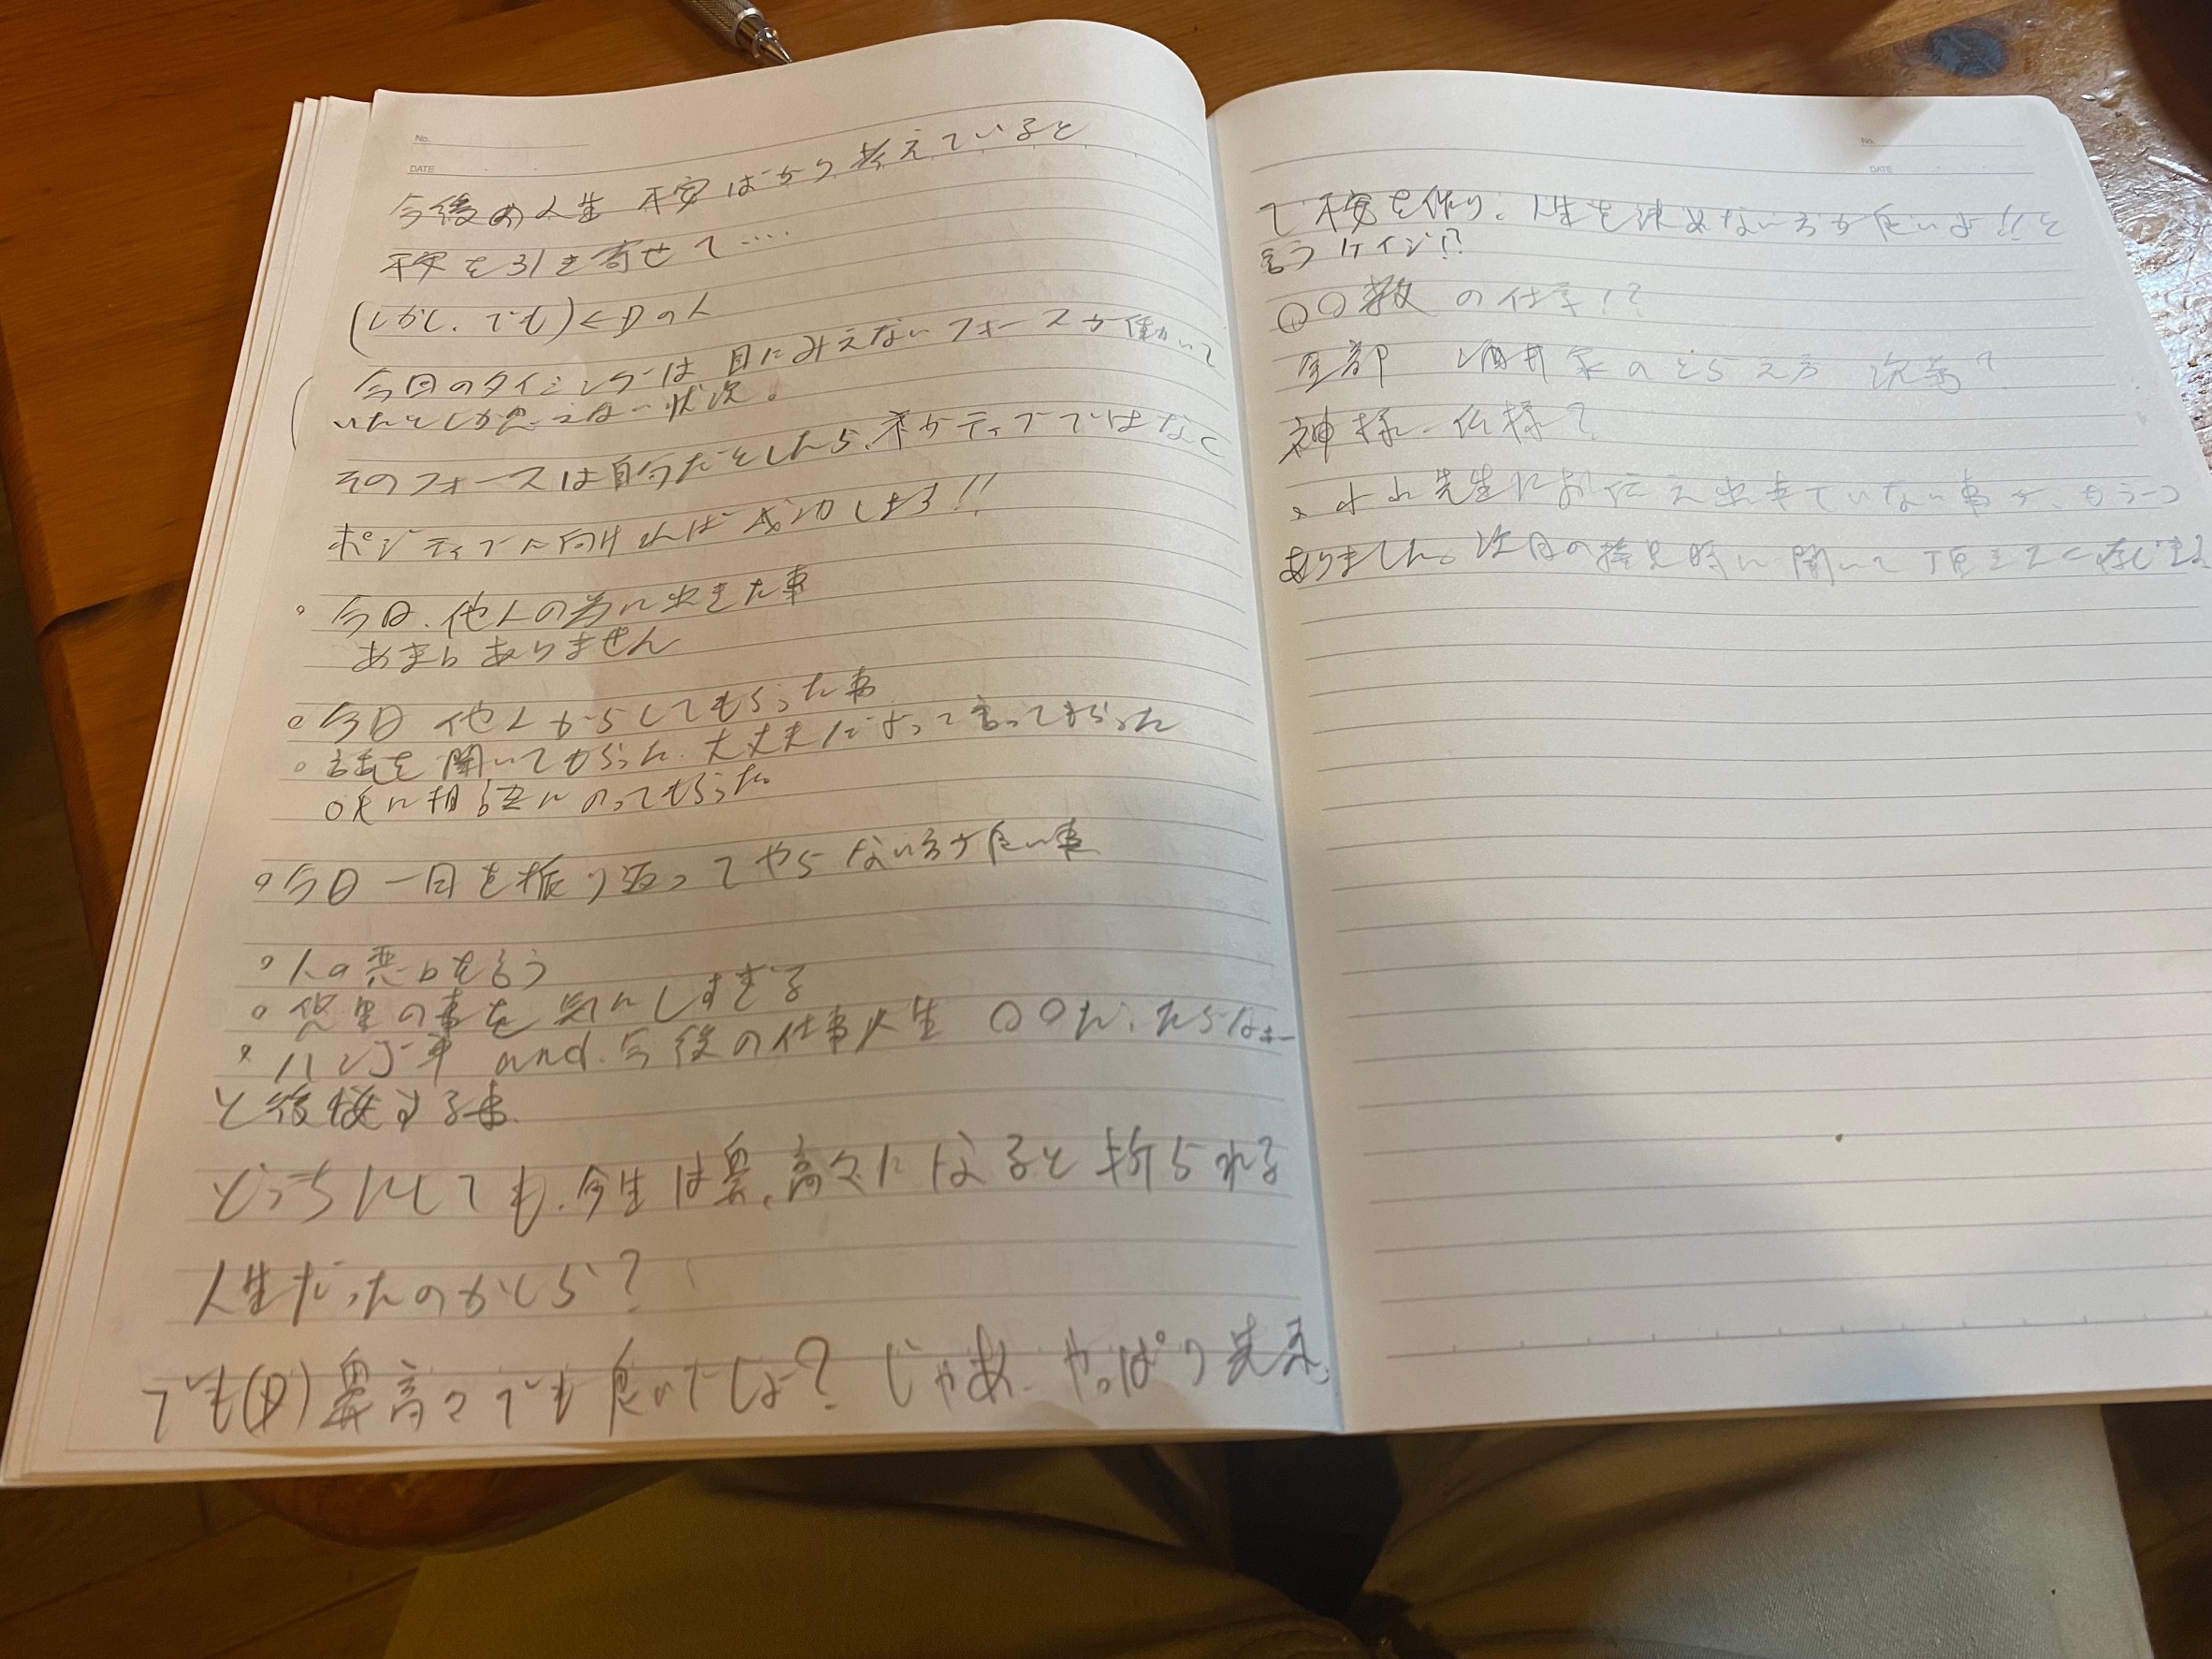 No.
DATE
今後の人生 不安ばかり考えていると
不安を引き寄せて‥‥
(しかし、でも)<Dの人
今回のタイミングは目にみえないフォースが働いて
いたとしか思えない状況。
そのフォースは自分だとしたら、ネガティブではなく
ポジティブに向ければ成功しそう!!
。今日、他人の為に出きた事
あまりありません
。今日 他人からしてもらった事
。話を聞いてもらった、大丈夫だよって言ってもらった
に相談にのってもらった
。今日一日を振り返ってやらない方が良い事
。人の悪口を言う
。の事を気にしすぎる
and.今後の仕事人生 〇〇だったらなー
と後悔する事.
どっちにしても、今生は鼻、高々になると折られる
人生だったのかしら?
でも(D)鼻高々でも良いでしょ?じゃあ、やっぱり先
No.
DATE
て不安を作り、人生を決めない方が良いよ!!と
言う ケイジ!?
〇〇教 の仕業!?
全部 酒井家のとらえ方 次第?
神様 仏様?
先生にお伝え出来ていない事が、もう一つ
ありました。次回の接見時に聞いて頂き